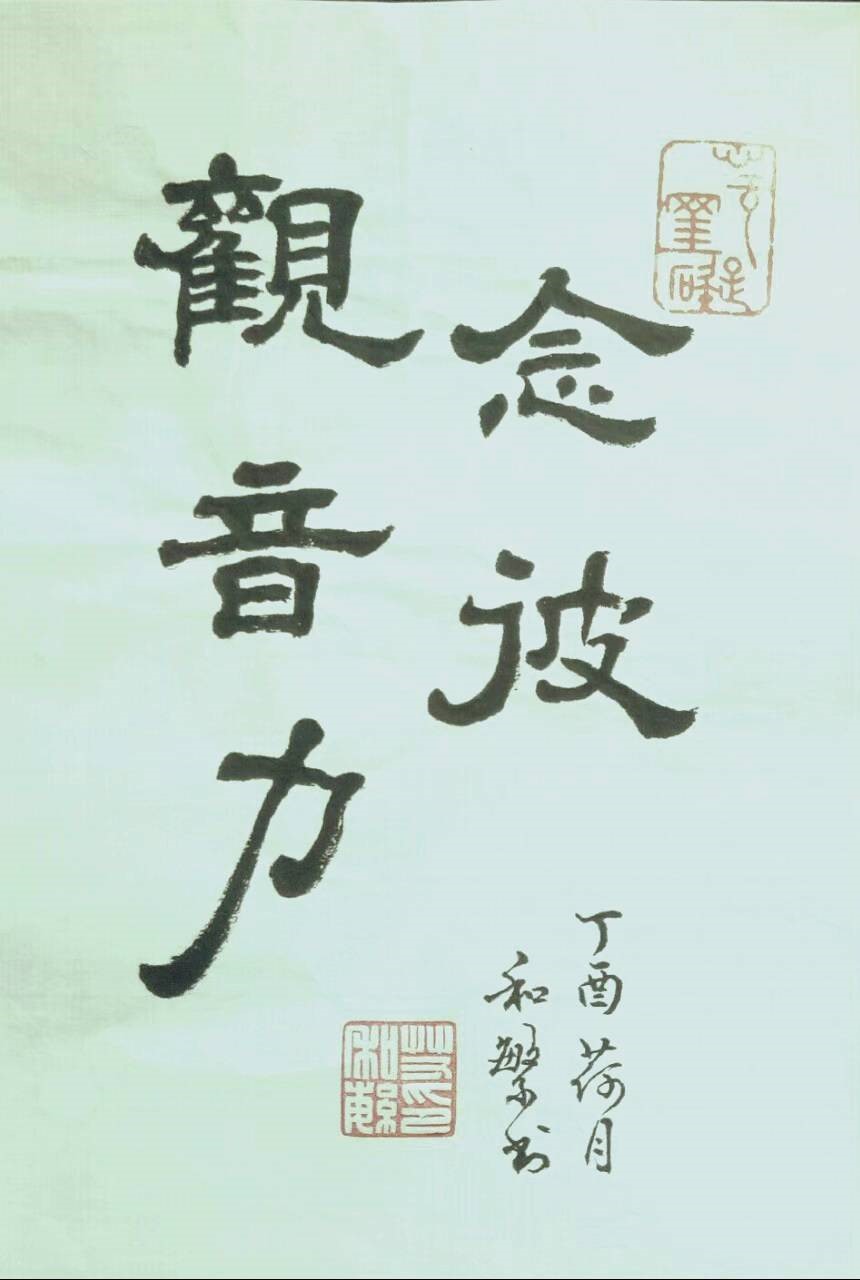 念彼
觀音力
丁酉荷月
和繁书